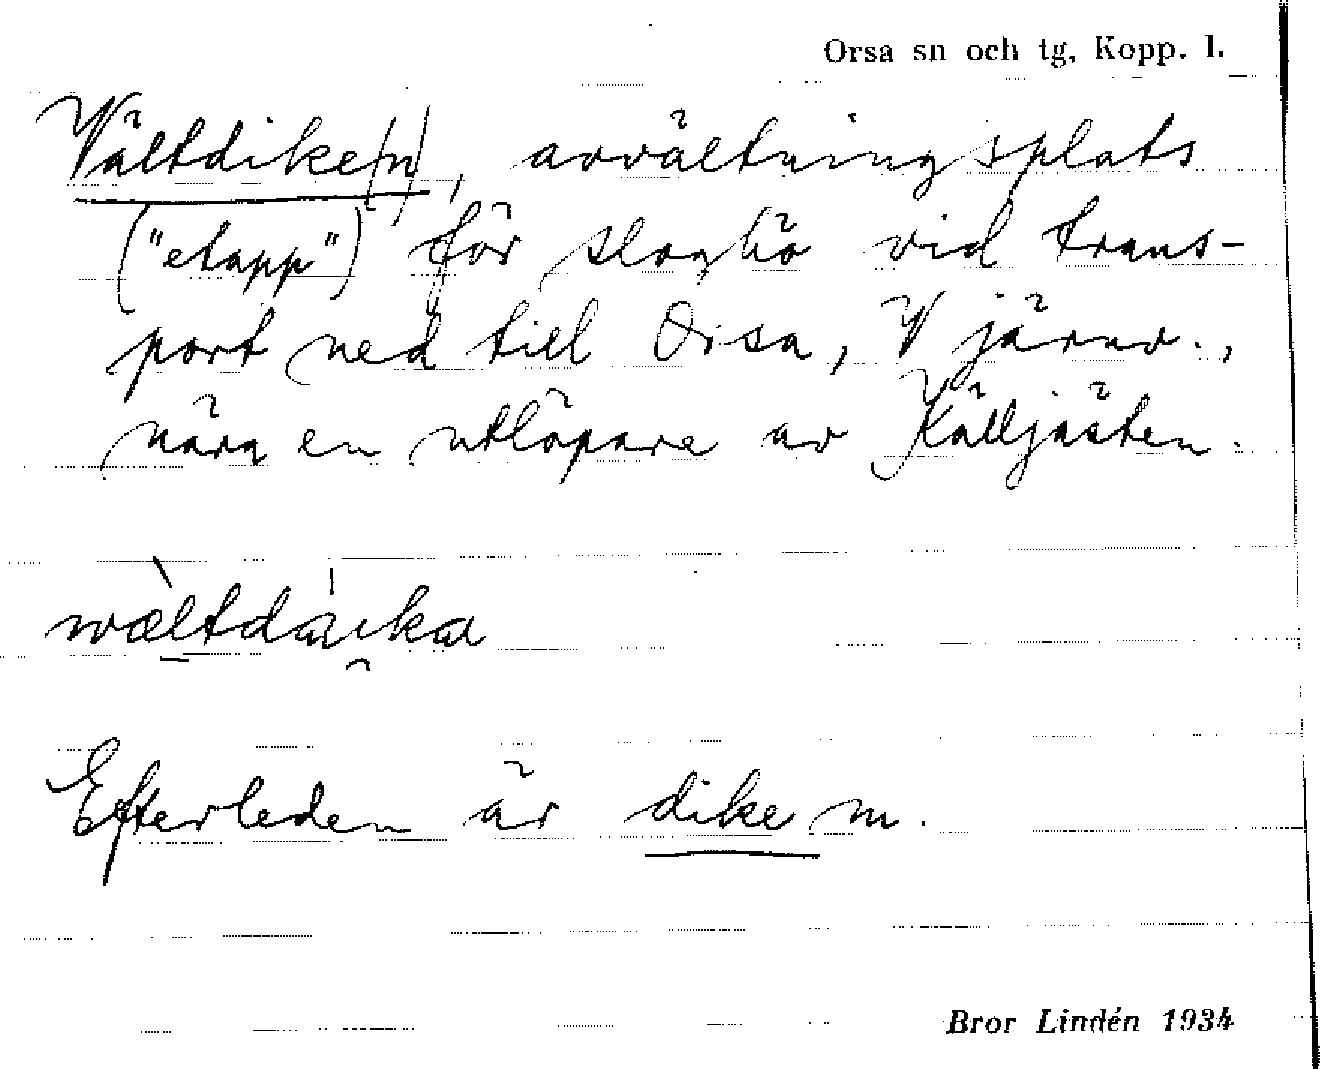 Orsa sn och tg, Kopp. l.
Vältdike(n), avvältningsplats
("etapp") för sloghö vid trans-
port ned till Orsa, V järnv.,
nära en utlöpare av Källjästen.
Efterleden är dike m.
Bror Lindén 1934